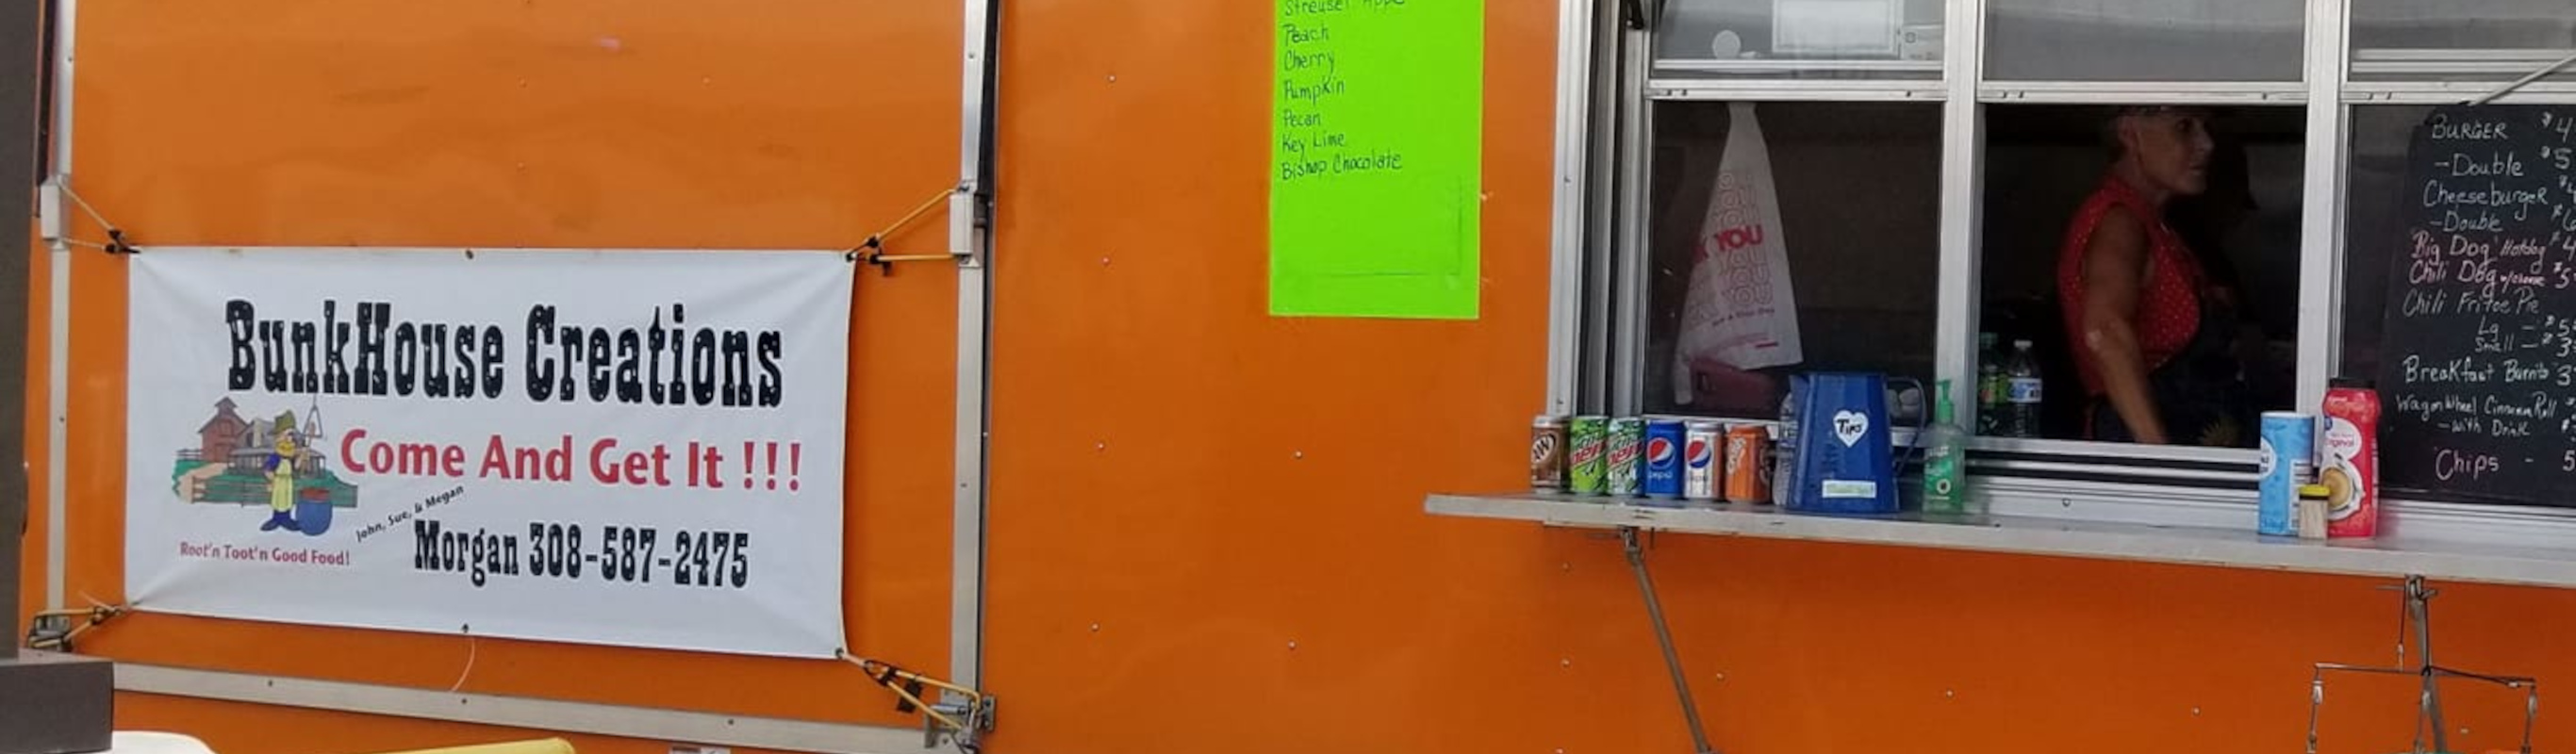 BunkHouse Creations
Come And Get It !!!
John, Sue, & Megan
Morgan 308-587-2475
Root'n Toot'n Good Food!
Streusel
Peach
Cherry
Pumpkin
Pecan
Key Lime
Bishop Chocolate
YOU
Tips
pepsi
BURGER $4
-Double $5
Cheeseburger
-Double
Big Dog Hotdog $4
Chili Dog w/cheese $5
Chili Fritoe Pie
Lg - $5
Small - $3
Breakfast Burrito 3
Wagon Wheel Cinnamon Roll
-With Drink
Chips - 5